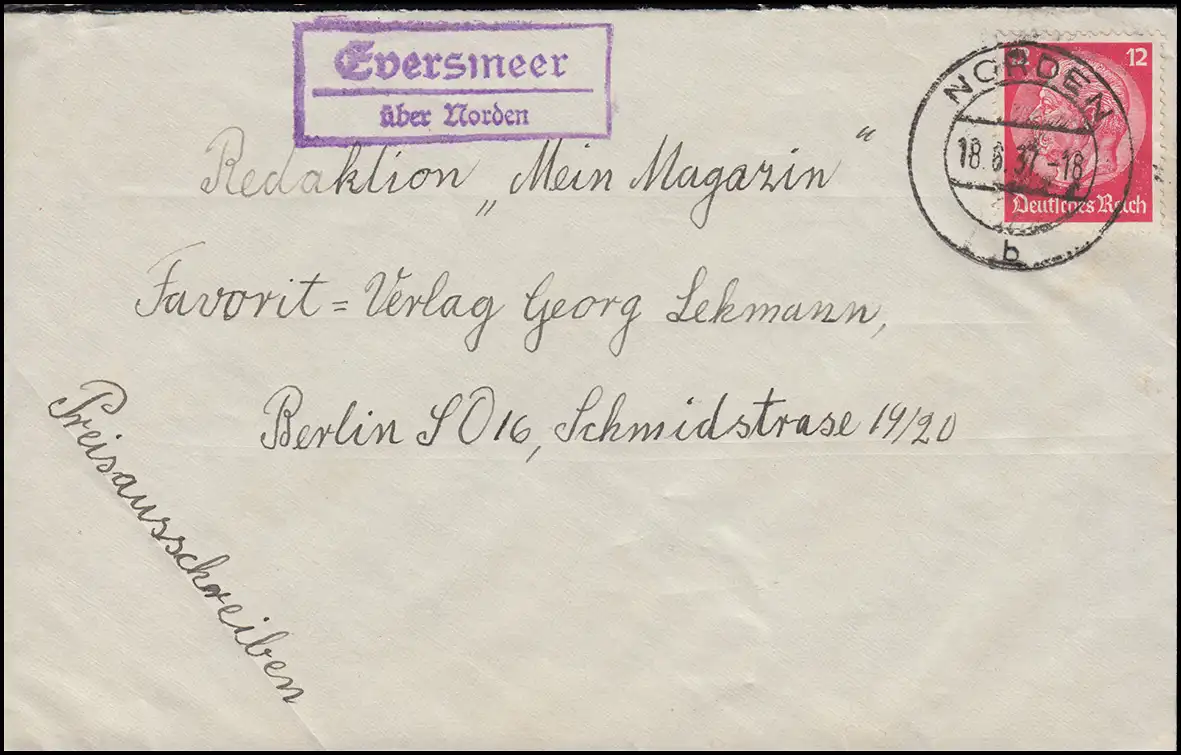 Eversmeer
über Norden
12
NORDEN
18.6.37.-18
b
Deutsches Reich
Redaktion „Mein Magazin“
Favorit=Verlag Georg Lekmann,
Berlin SO16, Schmidstrase 19/20
Preisausschreiben